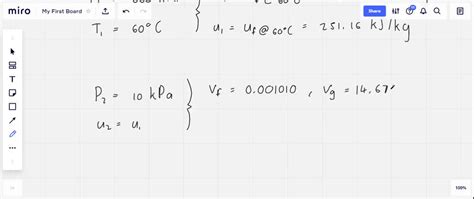 miro My First Board Share
T₁ = 60°C } u₁ = u_f @ 60°C = 251.16 kJ/kg
P₂ = 10 kPa } v_f = 0.001010 , v_g = 14.67
u₂ = u₁
100%